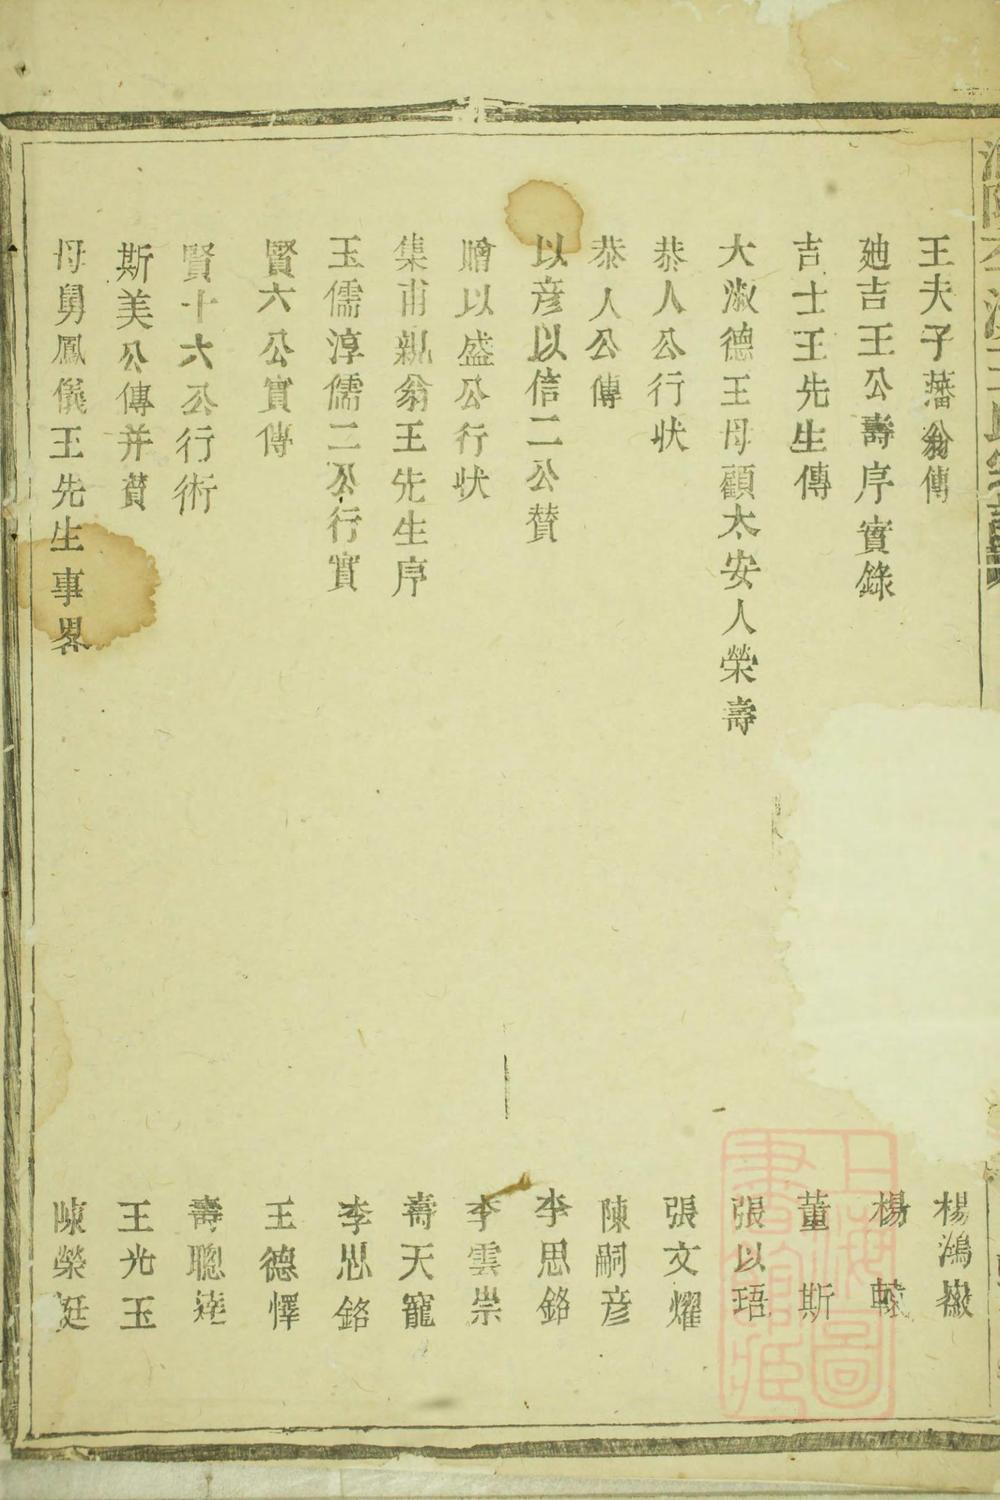 王夫子藩翁傳 楊鴻嶽
廸吉王公壽序實錄 楊轅
吉士王先生傳 董斯
大淑德王母顧太安人榮壽 張以珸
恭人公行狀 張文耀
恭人公傳 陳嗣彦
以彦以信二公賛 李思銘
贈以盛公行状 李雲崇
集甫親翁王先生序 壽天寵
玉儒淳儒二公行實 李思銘
賢六公實傳 王德懌
賢十六公行術 壽聰達
斯美公傳并賛 王光玉
母舅鳳儀王先生事畧 陳榮廷
上海圖書館藏